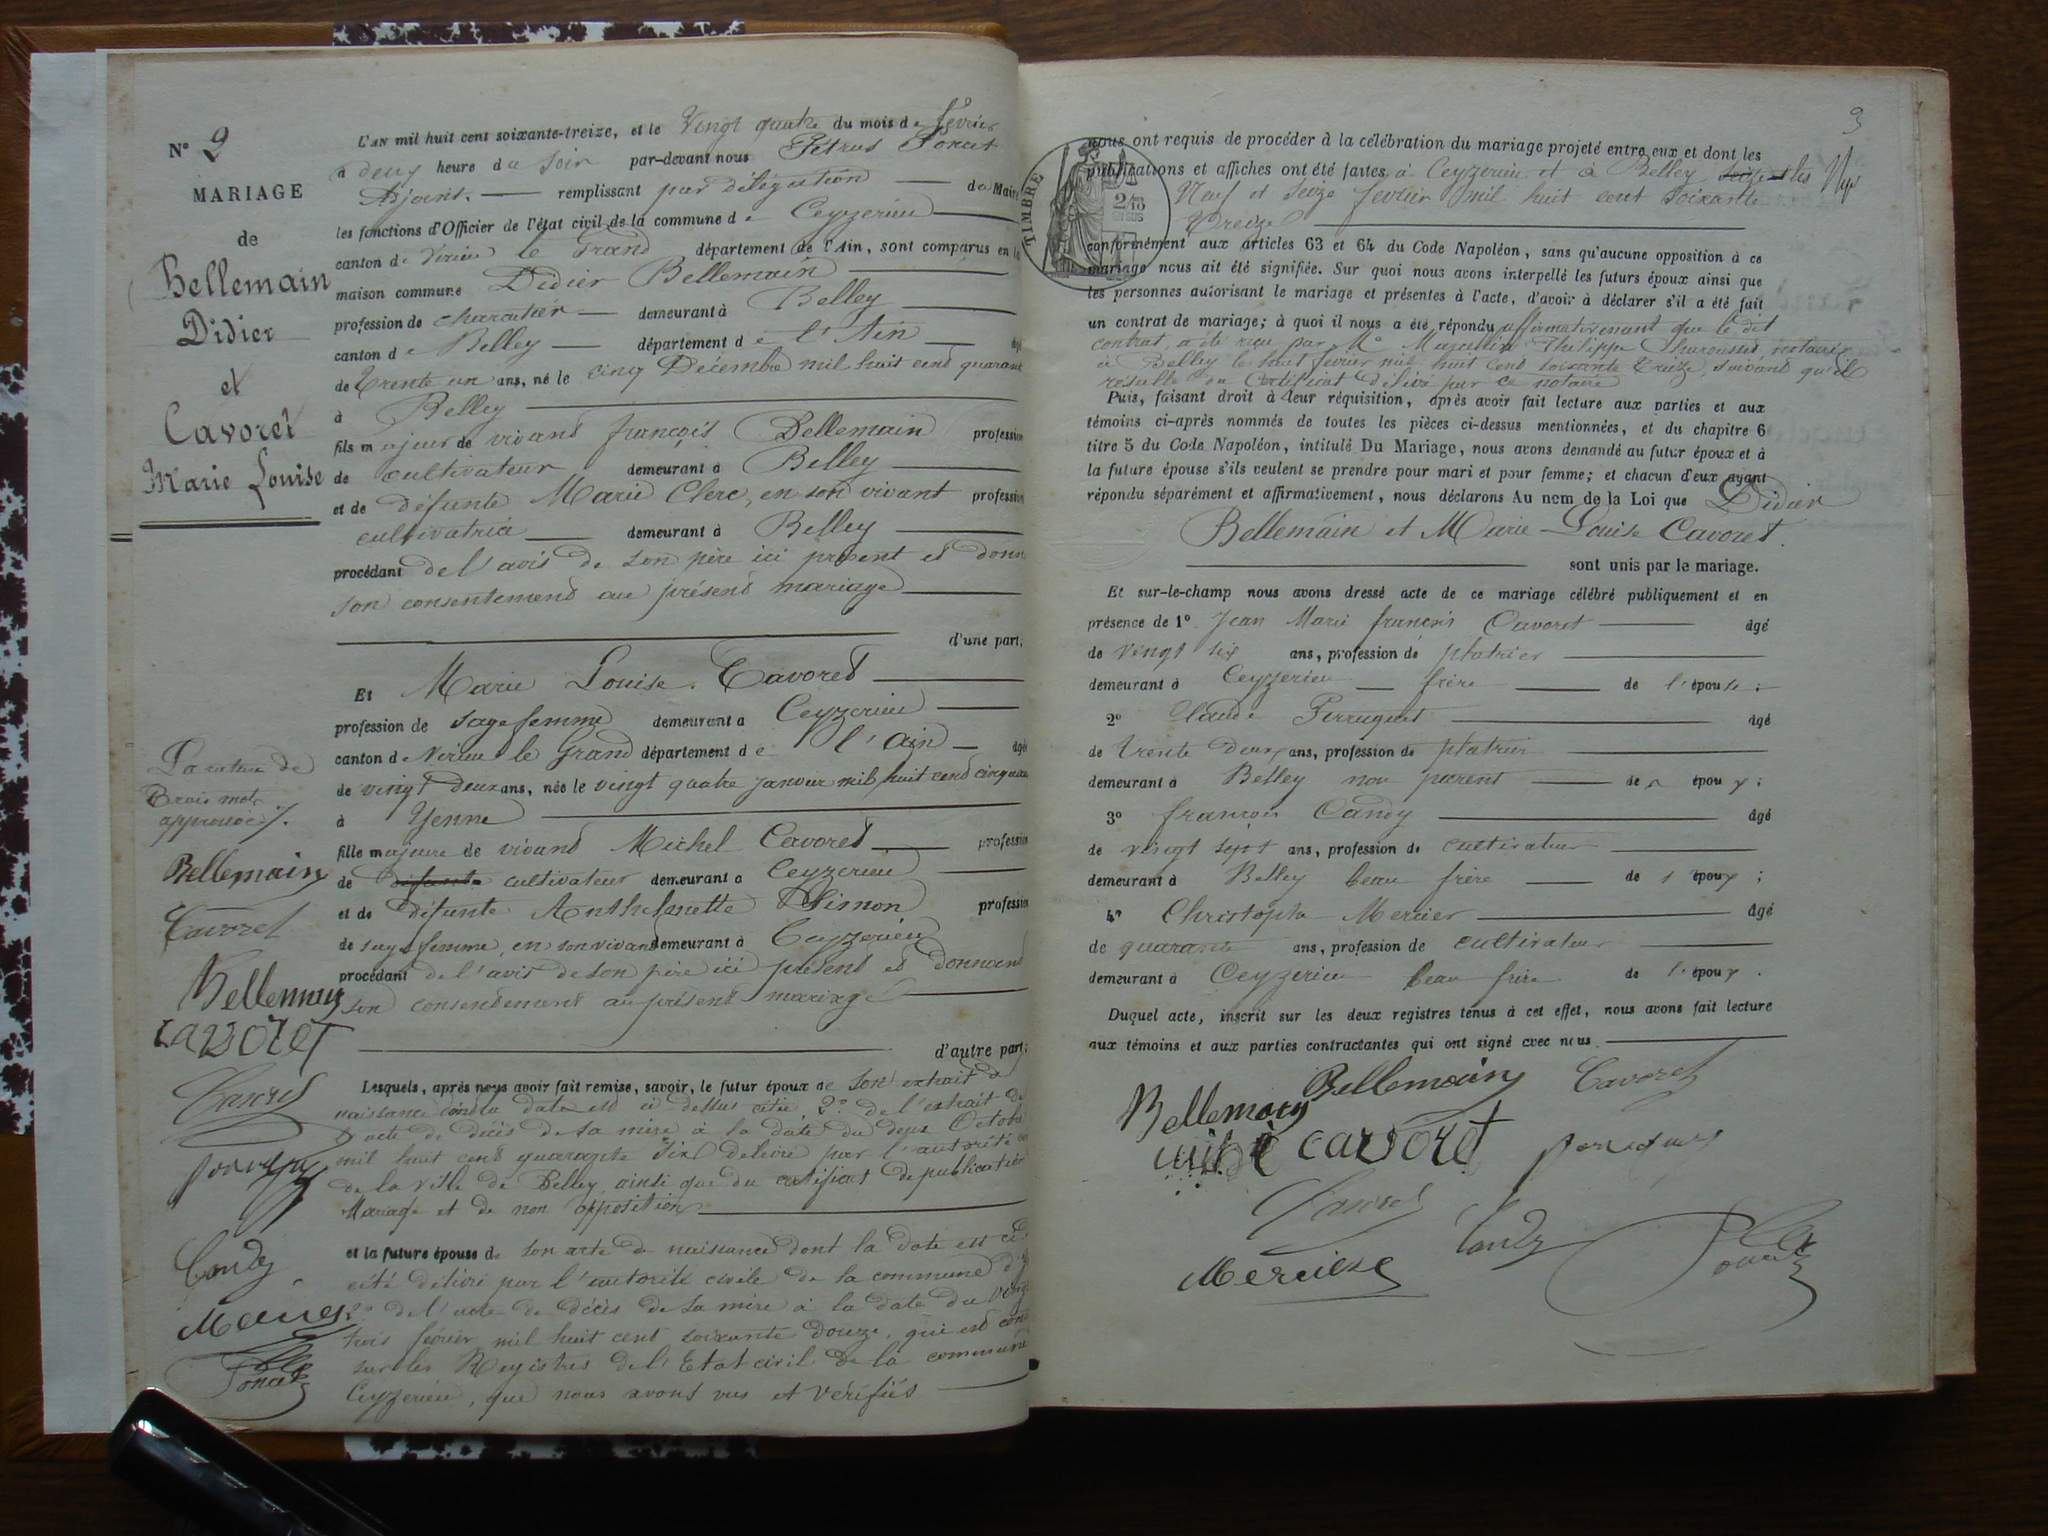 N° 2
MARIAGE
de
Bellemain
Didier
et
Cavoret
Marie Louise
L'AN mil huit cent soixante-treize, et le Vingt quatre du mois de février
à deux heure du soir par-devant nous Pétrus Poncet
Adjoint remplissant par délégation du Maire
les fonctions d'Officier de l'état civil de la commune de Ceyzerieu
canton de Virieu le Grand département de l'Ain, sont comparus en la
maison commune Didier Bellemain
profession de charcutier demeurant à Belley
canton de Belley département de l'Ain
de Trente un ans, né le cinq Décembre mil huit cent quarante
à Belley
fils majeur de vivant françois Bellemain profession
de cultivateur demeurant à Belley
et de défunte Marie Clerc, en son vivant profession
cultivatrice demeurant à Belley
procédant de l'avis de son père ici présent et donnant
son consentement au présent mariage
d'une part;
Et Marie Louise Cavoret
profession de sage femme demeurant à Ceyzerieu
canton de Virieu le Grand département de l'Ain âgée
de vingt deux ans, née le vingt quatre janvier mil huit cent cinquante
à Yenne
fille majeure de vivant Michel Cavoret profession
de défunte cultivateur demeurant à Ceyzerieu
et de défunte Anthelmette Simon profession
de sage femme, en son vivant demeurant à Ceyzerieu
procédant de l'avis de son père ici présent et donnant
son consentement au présent mariage
d'autre part;
Lesquels, après nous avoir fait remise, savoir, le futur époux de son extrait de
naissance dont la date est ci-dessus citée, 2° de l'extrait de
l'acte de décès de sa mère à la date du deux Octobre
mil huit cent quarante six délivré par l'autorité
de la ville de Belley, ainsi que du certificat de publication
Mariage et de non opposition
et la future épouse de son acte de naissance dont la date est ci
cité délivré par l'autorité civile de la commune d'
2° de l'acte de décès de sa mère à la date du vingt
trois février mil huit cent soixante douze, qui est
sur les Registres de l'Etat civil de la commune
Ceyzerieu, que nous avons vus et vérifiés
La rature de
trois mots
approuvée
Bellemain
Cavoret
Bellemain
cavoret
Candy
Mercier
Poncet
3
TIMBRE
nous ont requis de procéder à la célébration du mariage projeté entre eux et dont les
publications et affiches ont été faites à Ceyzerieu et à Belley les
Neuf et seize février mil huit cent soixante
Treize
conformément aux articles 63 et 64 du Code Napoléon, sans qu'aucune opposition à ce
mariage nous ait été signifiée. Sur quoi nous avons interpellé les futurs époux ainsi que
les personnes autorisant le mariage et présentes à l'acte, d'avoir à déclarer s'il a été fait
un contrat de mariage; à quoi il nous a été répondu affirmativement que le dit
contrat a été reçu par Me Philippe notaire
à Belley le huit février mil huit cent soixante treize, suivant qu'il
résulte du certificat délivré par ce notaire
Puis, faisant droit à leur réquisition, après avoir fait lecture aux parties et aux
témoins ci-après nommés de toutes les pièces ci-dessus mentionnées, et du chapitre 6
titre 5 du Code Napoléon, intitulé Du Mariage, nous avons demandé au futur époux et à
la future épouse s'ils veulent se prendre pour mari et pour femme; et chacun d'eux ayant
répondu séparément et affirmativement, nous déclarons Au nom de la Loi que Didier
Bellemain et Marie-Louise Cavoret.
sont unis par le mariage.
Et sur-le-champ nous avons dressé acte de ce mariage célébré publiquement et en
présence de 1° Jean Marie françois Cavoret âgé
de vingt six ans, profession de platrier
demeurant à Ceyzerieu frère de l'épouse;
2° Claude Perruquet âgé
de trente deux ans, profession de platrier
demeurant à Belley non parent de époux;
3° françois Candy âgé
de vingt sept ans, profession de cultivateur
demeurant à Belley beau frère de l'époux;
4° Christophe Mercier âgé
de quarante ans, profession de cultivateur
demeurant à Ceyzerieu beau frère de l'époux.
Duquel acte, inscrit sur les deux registres tenus à cet effet, nous avons fait lecture
aux témoins et aux parties contractantes qui ont signé avec nous.
Bellemain Bellemain Cavoret
cavoret
Candy
Mercier
Poncet